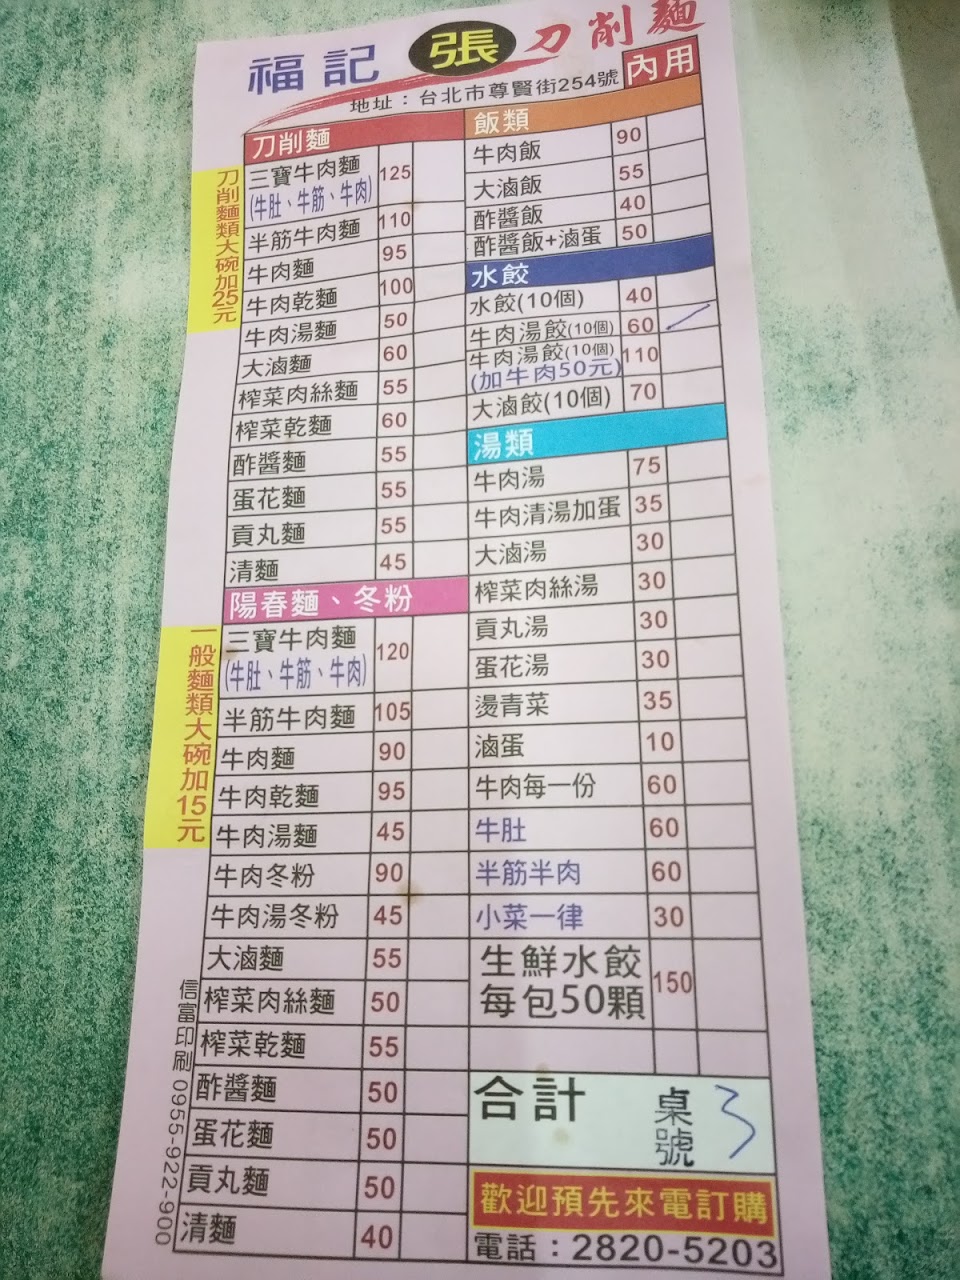 福記 張 刀削麵
地址：台北市尊賢街254號
內用
刀削麵類大碗加25元
刀削麵
三寶牛肉麵 125
(牛肚、牛筋、牛肉)
半筋牛肉麵 110
牛肉麵 95
牛肉乾麵 100
牛肉湯麵 50
大滷麵 60
榨菜肉絲麵 55
榨菜乾麵 60
酢醬麵 55
蛋花麵 55
貢丸麵 55
清麵 45
一般麵類大碗加15元
陽春麵、冬粉
三寶牛肉麵 120
(牛肚、牛筋、牛肉)
半筋牛肉麵 105
牛肉麵 90
牛肉乾麵 95
牛肉湯麵 45
牛肉冬粉 90
牛肉湯冬粉 45
大滷麵 55
榨菜肉絲麵 50
榨菜乾麵 55
酢醬麵 50
蛋花麵 50
貢丸麵 50
清麵 40
信富印刷 0955-922-900
飯類
牛肉飯 90
大滷飯 55
酢醬飯 40
酢醬飯+滷蛋 50
水餃
水餃(10個) 40
牛肉湯餃(10個) 60
牛肉湯餃(10個) 110
(加牛肉50元)
大滷餃(10個) 70
湯類
牛肉湯 75
牛肉清湯加蛋 35
大滷湯 30
榨菜肉絲湯 30
貢丸湯 30
蛋花湯 30
燙青菜 35
滷蛋 10
牛肉每一份 60
牛肚 60
半筋半肉 60
小菜一律 30
生鮮水餃
每包50顆 150
合計 桌號 3
歡迎預先來電訂購
電話：2820-5203